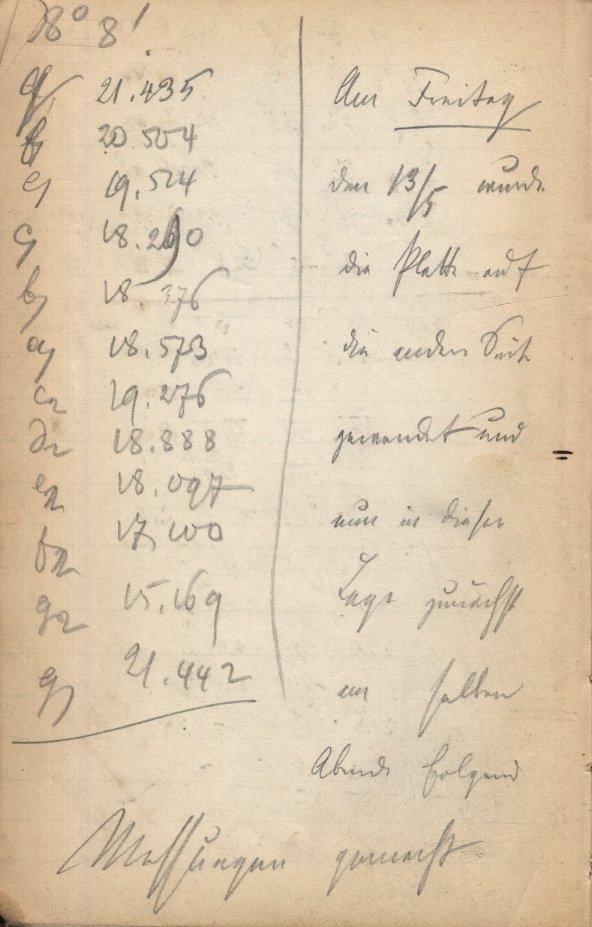 18° 8'
g, 21.435
f, 20.504
e, 19.524
c, 18.290
b, 18 376
a, 18.573
c2 19.276
d2 18.888
e2 18.097
f2 17,100
g2 15.169
g, 21.442
Am Freitag
den 13/5 wurde
die Platte auf
die andere Seite
gewendet und
nun in dieser
Lage zunächst
am selben
Abende folgend
Messungen gemacht